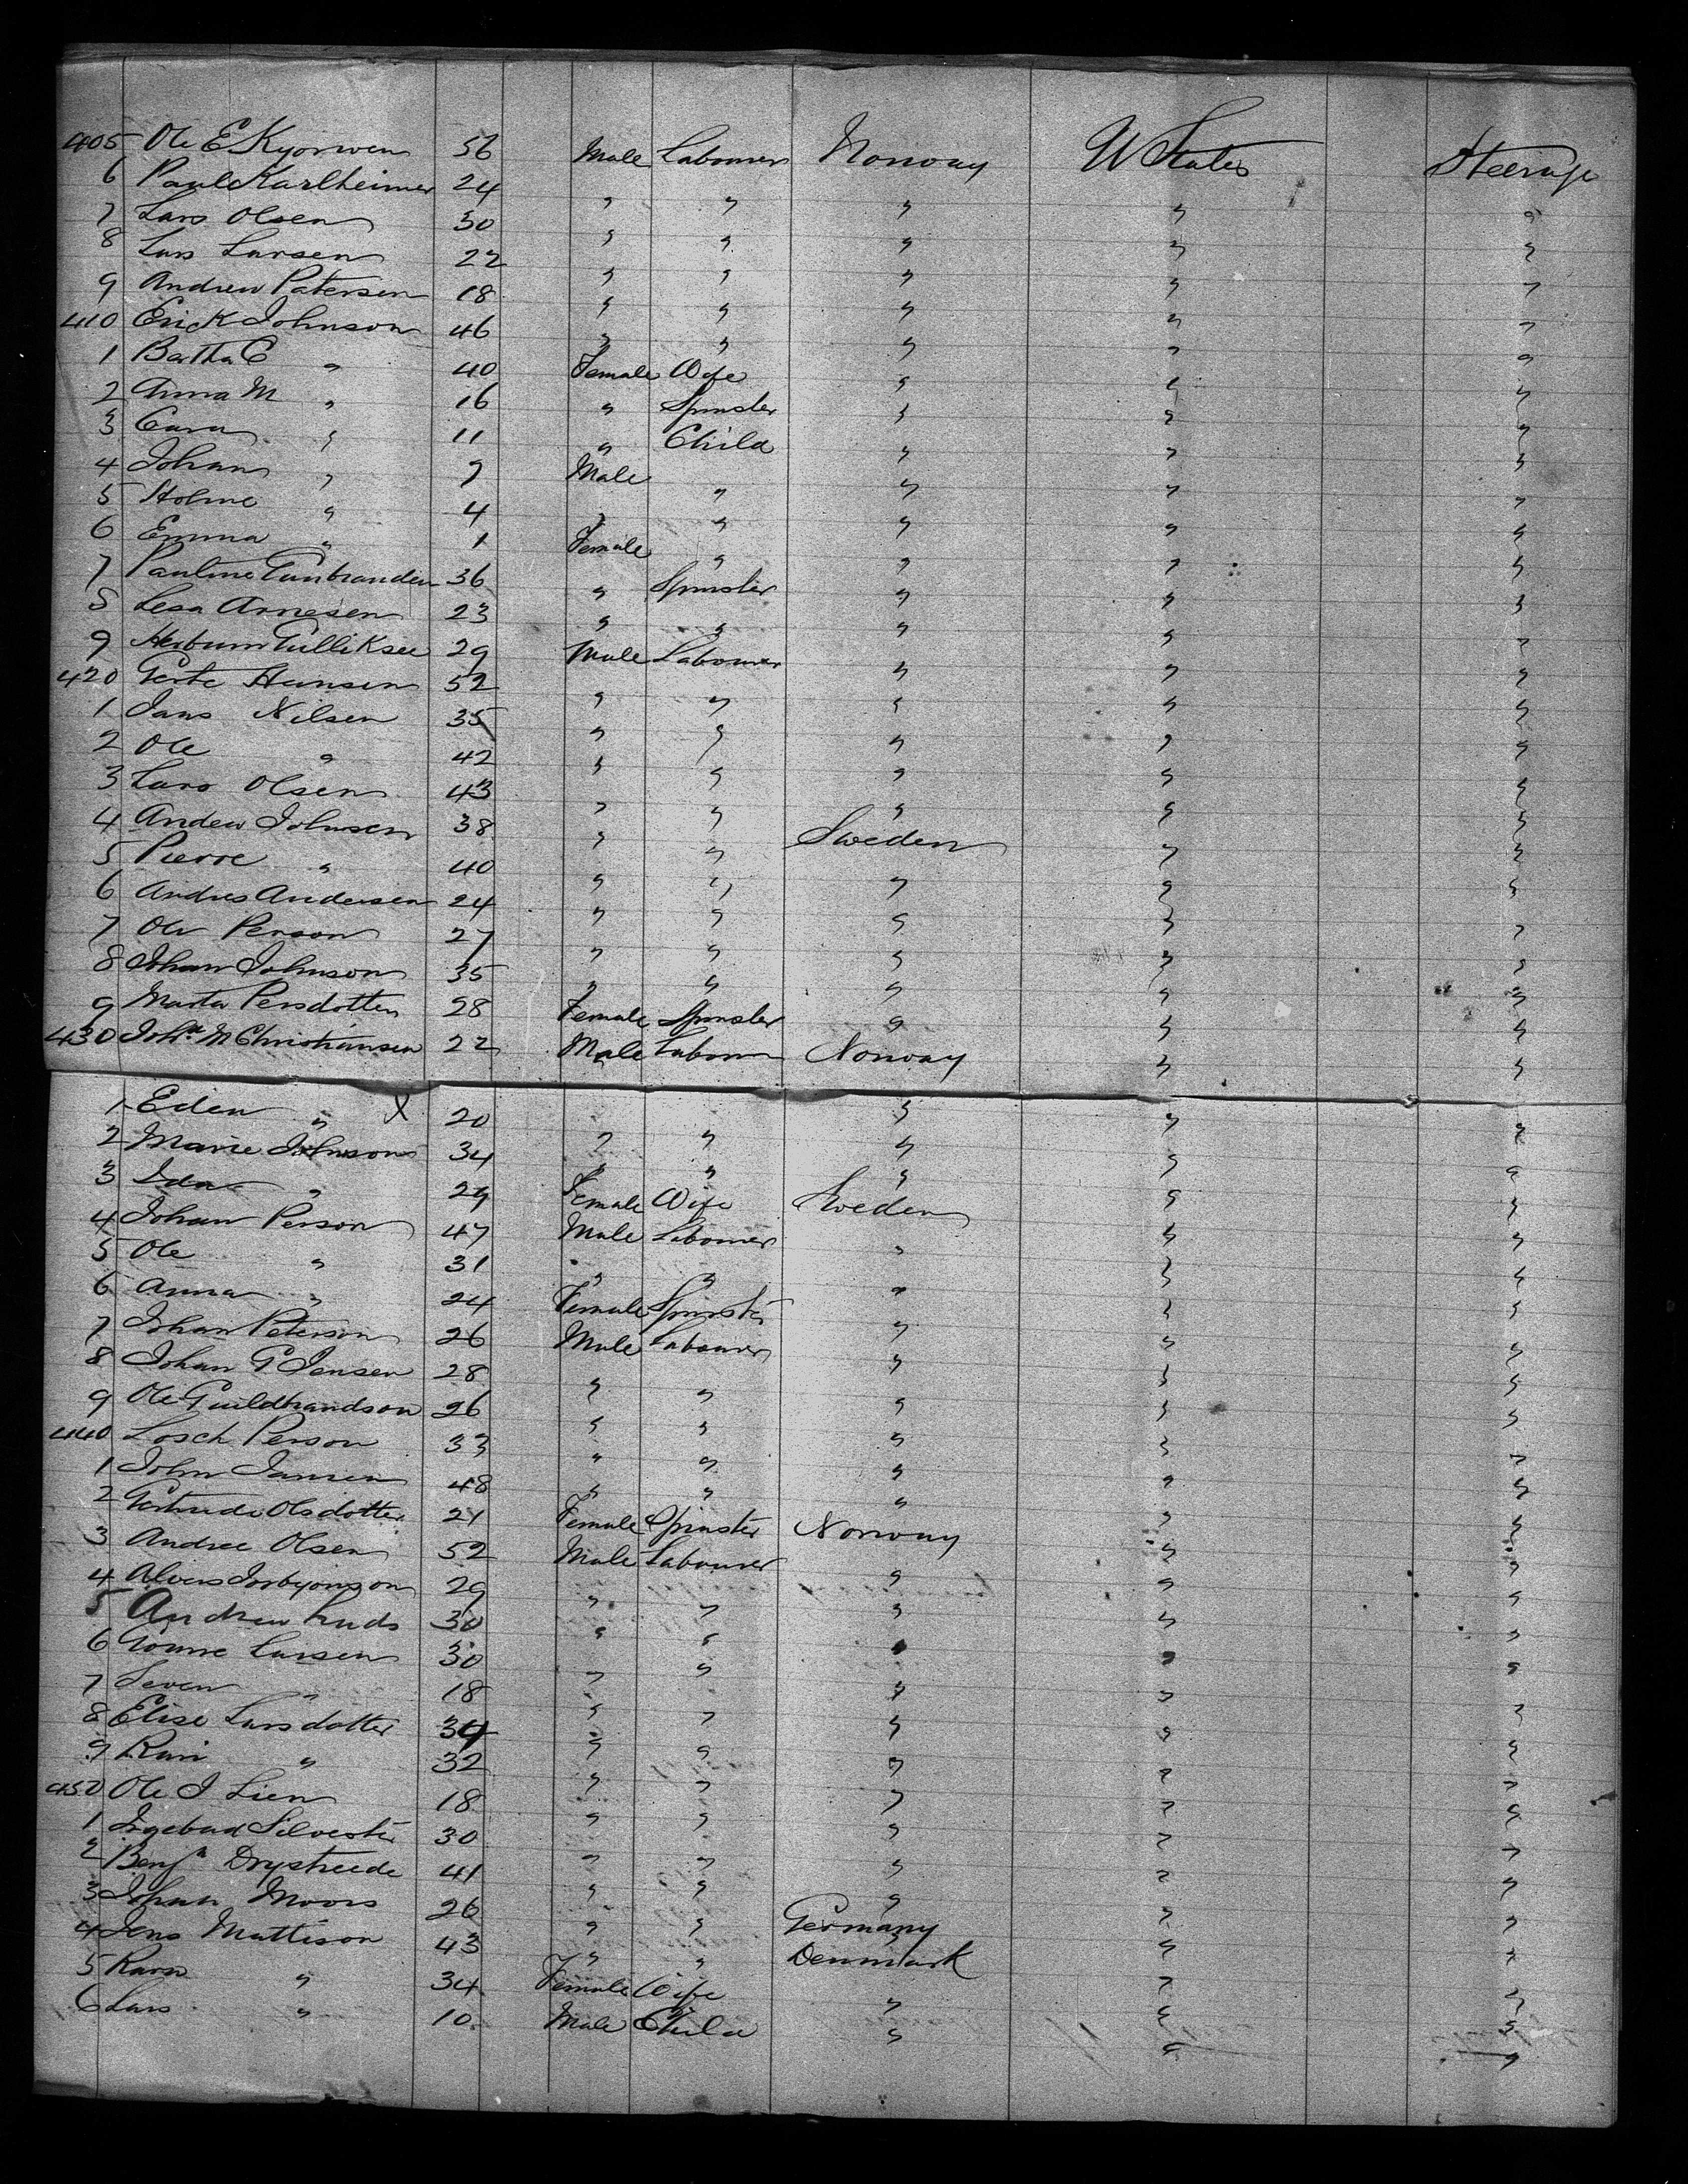 405 Ole E Kyorwen 56 Male Labourer Norway U States Steerage
6 Paul Karlheimer 24 " " " " "
7 Lars Olsen 30 " " " " "
8 Lars Larsen 22 " " " " "
9 Andrew Patersen 18 " " " " "
410 Erick Johnson 46 " " " " "
1 Bartha C " 40 Female Wife " " "
2 Anna M " 16 " Spinster " " "
3 Cara " 11 " Child " " "
4 Johan " 7 Male " " " "
5 Holme " 4 " " " " "
6 Emma " 1 Female " " " "
7 Pauline Gunbranden 36 " Spinster " " "
8 Lesa Arnesen 23 " " " " "
9 Gulliksee 29 Male Labourer " " "
420 Hansen 52 " " " " "
1 Jans Nilsen 35 " " " " "
2 Ole " 42 " " " " "
3 Lars Olsen 43 " " " " "
4 Andew Johnsen 38 " " Sweden " "
5 Pierre " 40 " " " " "
6 Andres Andersen 24 " " " " "
7 Ole Person 27 " " " " "
8 Johan Johnson 35 " " " " "
9 Marta Persdotter 28 Female Spinster " " "
430 Joh.ⁿ M Christiansen 22 Male Labour Norway " "
1 Eden " X 20 " " " " "
2 Marie Johnson 34 " " " " "
3 Ida " 29 Female Wife Sweden " "
4 Johan Person 47 Male Labourer " " "
5 Ole " 31 " " " " "
6 Anna " 24 Female Spinster " " "
7 Johan Peterson 26 Male Labourer " " "
8 Johan P. Jensen 28 " " " " "
9 Ole Guildbrandson 26 " " " " "
440 Losch Person 33 " " " " "
1 John Jansen 48 " " " " "
2 Gertrude Olsdotter 21 Female Spinster Norway " "
3 Andree Olsen 52 Male Labourer " " "
4 Alvers 29 " " " " "
5 Andrew Luds 30 " " " " "
6 Larsen 30 " " " " "
7 Seven " 18 " " " " "
8 Elise Larsdotter 34 " " " " "
9 Kari " 32 " " " " "
450 Ole J Lien 18 " " " " "
1 Ingebud Silvester 30 " " " " "
2 Benjⁿ Drystreede 41 " " " " "
3 Johan Moors 26 " " Germany " "
4 Jens Mattison 43 " " Denmark " "
5 Karn " 34 Female Wife " " "
6 Lars " 10 Male Child " " "